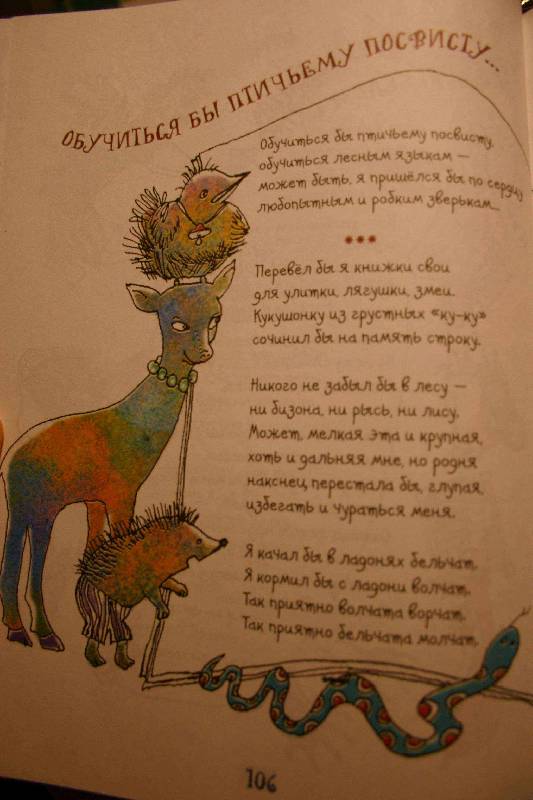 ОБУЧИТЬСЯ БЫ ПТИЧЬЕМУ ПОСВИСТУ...
Обучиться бы птичьему посвисту,
обучиться лесным языкам —
может быть, я пришёлся бы по сердцу
любопытным и робким зверькам...
***
Перевёл бы я книжки свои
для улитки, лягушки, змеи.
Кукушонку из грустных «ку-ку»
сочинил бы на память строку.
Никого не забыл бы в лесу —
ни бизона, ни рысь, ни лису.
Может, мелкая эта и крупная,
хоть и дальняя мне, но родня
наконец перестала бы, глупая,
избегать и чураться меня.
Я качал бы в ладонях бельчат,
Я кормил бы с ладони волчат.
Так приятно волчата ворчат,
Так приятно бельчата молчат.
106